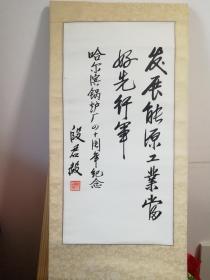 发展能源工業當
好先行军
哈尔滨锅炉厂四十周年纪念
段君毅